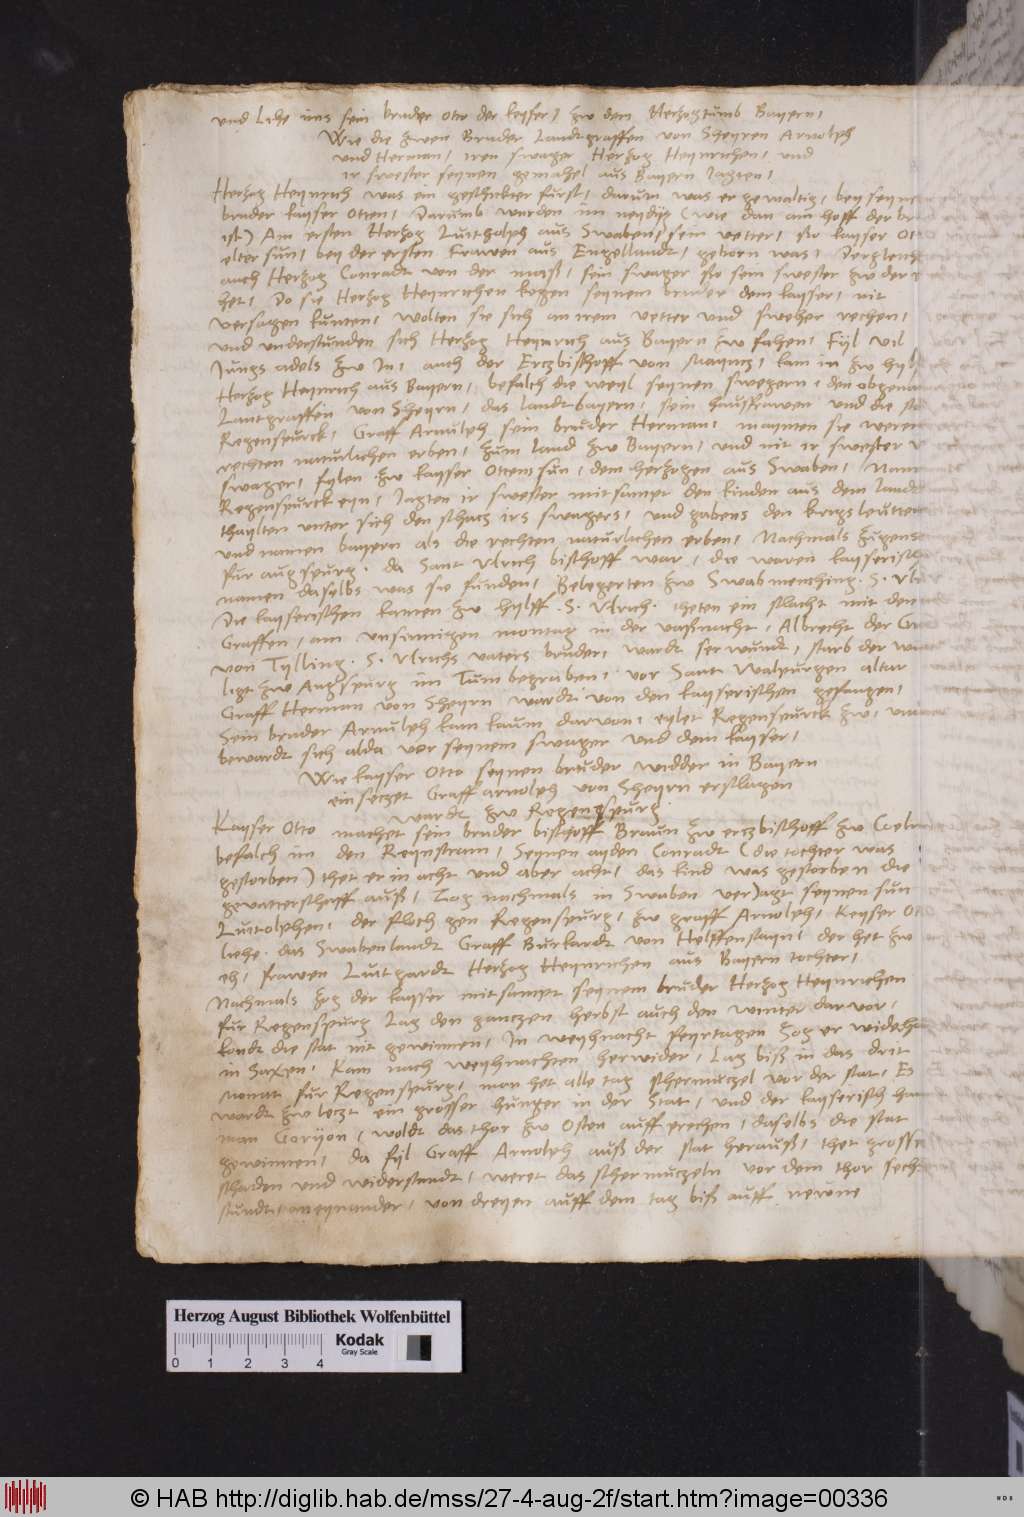 und Lihe ims sein bruder otto der keyser / zw dem Hertzogtumb Bayern /
Wie die zwen Bruder Landtgraffen von Sheyren Arnolph
und Herman / iren swager Hertzog Heynrichen / und
ir swester seynen gemahel aus Bayern Jagten /
Hertzog Heynrich was ein geschickter furst / darum was er gewaltig / bey seynem
bruder kayser Otten / Darumb wurden im neydig (wie dan am hoff der
ist) Am ersten Hertzog Luitholph aus Swaben / sein vetter / sso kayser
elter sun / bey der ersten Frawen aus Engellandt / geborn was /
auch Hertzog Conradt von der mass / sein swager sso sein swester zw der
het / Do sie Hertzog Heynrichen kegen seynem bruder dem kayser / nit
versagen kunten / wolten sie sich an irem vetter und sweher rechen /
und understunden sich Hertzog Heynrich aus Bayern zw fahen / Fyl vil
Jungs adels zw In / auch der Ertzbisschoff von Mayntz / kam in zw
Hertzog Heynrich aus Bayern / befalch die weyl seynen swegern / den
Lantgraffen von Sheyrn / das landt bayern / sein hausfrawen und die
Regenspurck / Graff Arnulph sein bruder Herman / maynten sie weren
rechten naturlichen erben / zum land zw Bayern / und nit ir swester
swager / fylen zw kayser Ottens sun / dem hertzogen aus Swaben /
Regenspurck eyn / Jagten ir swester mitsampt den kinden aus dem landt
thaylten unter sich den schatz irs swagers / und gabens den krigsleutten
und namen bayern als die rechten naturlichen erben / Nachmals
fur augspurg / da Sant Ulrich bischoff war / die waren kayserisch
namen daselbs was sie funden / Belegerten zw Swabmenching / S.
Die kayserischen kamen zw hylff S. Ulrich / theten ein slacht mit den
Graffen / am unsinnigen montag in der vasnacht / Albrecht der
von Tylling / S. Ulrichs vaters bruder / wardt ser wundt / starb der
ligt zw Augspurg im Tum begraben / vor Sant Walpurgen altar
Graff Herman von Sheyrn wardt von den kayserischen gefangen /
Sein bruder Arnulph kam kaum darvon / eylet Regenspurck zw /
bewardt sich alda vor seynem swager und dem kayser /
Wie kayser Otto seynen bruder widder in Bayern
einseczet Graff arnolph von Sheyrn erslagen
wardt zw Regenspurg
Kayser Otto machet sein bruder bischoff Braun zw ertzbischoff zw
befalch im den Reynstram / Seynen ayden Conradt (die tochter was
gestorben) thet er in acht und aber acht / das kind was gestorben die
gevatterschaff auss / Zog nachmals in Swaben verJagt seynen sun
Luitolphen / der floch gen Regenspurg / zw graff Arnolph / Keyser
liehe das Swabenlandt Graff Burkardt von Helffenstayn / der het zw
eh / frawen Luithardt Hertzog Heynrichen aus Bayern tochter /
Nachmals zog der kayser mitsampt seynem bruder Hertzog Heynrichen
fur Regenspurg Lag den gantzen herbst auch den winter darvor /
kondt die stat nit gewinnen / In weyhnacht feyrtagen zog er
in Saxen / Kam nach weyhnachten herwider / Lag biss in das drit
monat fur Regenspurg / man het alle tag schermuczel vor der stat /
wardt zw letzt ein grosser hunger in der Stat / und der kayserisch
man Goryon / woldt das thor zw Osten auff rechen / daselbs die stat
gewinnen / da fyl Graff Arnolph auss der stat herauss / thet
schaden und widerstandt / weret das schermuczeln vor dem thor sech
stundt / aneynander / von dreyen auff dem tag biss auff newne
Herzog August Bibliothek Wolfenbüttel
Kodak
Gray Scale
0 1 2 3 4
© HAB http://diglib.hab.de/mss/27-4-aug-2f/start.htm?image=00336